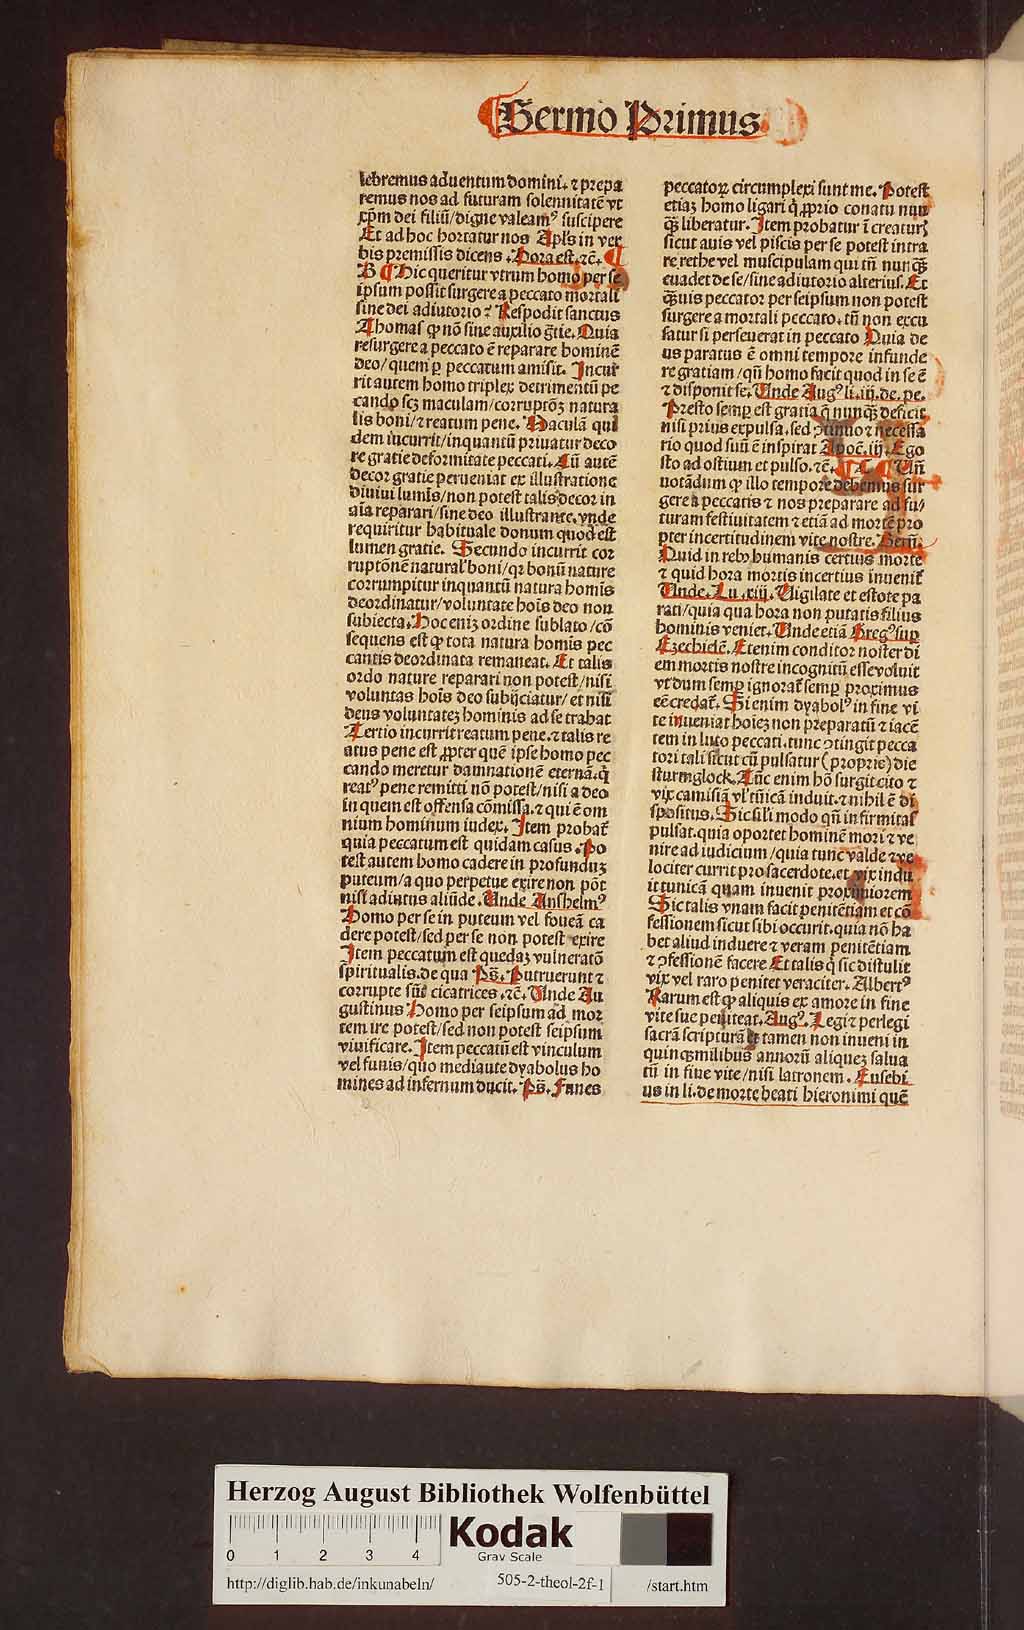 Sermo Primus
lebremus aduentum domini. ⁊ prepa
remus nos ad futuram solennitatē vt
xp̄m dei filiū/digne valeamꝰ suscipere
Et ad hoc hortatur nos Apl̓s in ver
bis premissis dicens. Hora est. ⁊c. ¶
B ¶ Hic queritur vtrum homo per se
ipsum possit surgere a peccato mortali
sine dei adiutorio? Respōdit sanctus
Thomas ꝙ nō sine auxilio gr̄tie. Quia
resurgere a peccato ē reparare hominē
deo/quem ꝑ peccatum amisit. Incur
rit autem homo triplex detrimentū pe
cando scꝫ maculam/corruptōꝫ natura
lis boni/⁊ reatum pene. Maculā qui
dem incurrit/inquantū priuatur deco
re gratie deformitate peccati. Cū autē
decor gratie perueniat ex illustratione
diuini lumīs/non potest talis decor in
aīa reparari/sine deo illustrante. vnde
requiritur habituale donum quod est
lumen gratie. Secundo incurrit cor
ruptōnē natural̓ boni/qꝛ bonū nature
corrumpitur inquantū natura homīs
deordinatur/voluntate hoīs deo non
subiecta. Hoc eniꝫ ordine sublato/cō
sequens est ꝙ tota natura homīs pec
cantis deordinata remaneat. Et talis
ordo nature reparari non potest/nisi
voluntas hoīs deo subijciatur/et nisi
deus voluntateꝫ hominis ad se trahat
Tertio incurrit reatum pene. ⁊ talis re
atus pene est ꝓpter quē ipse homo pec
cando meretur damnationē eternā. q̇
reatꝰ pene remitti nō potest/nisi a deo
in quem est offensa cōmissa. ⁊ qui ē om
nium hominum iudex. Item probat̄
quia peccatum est quidam casus. Po
test autem homo cadere in profunduꝫ
puteum/a quo perpetue exire non pōt
nisi adiutus aliūde. Unde Anshelmꝰ
Homo per se in puteum vel foueā ca
dere potest/sed per se non potest exire
Item peccatum est quedaꝫ vulneratō
sp̄iritualis. de qua ps̄. Putruerunt ⁊
corrupte sūt cicatrices. ⁊c. Unde Au
gustinus Homo per seipsum ad mor
tem ire potest/sed non potest seipsum
viuificare. Item peccatū est vinculum
vel funis/quo mediante dyabolus ho
mines ad infernum ducit. Ps̄. Funes
peccatoꝝ circumplexi sunt me. Potest
etiaꝫ homo ligari q̇ ꝓprio conatu nun
qͣꝫ liberatur. Item probatur ī creaturꝭ
sicut auis vel piscis per se potest intra
re rethe vel muscipulam qui tn̄ nunqͣꝫ
euadet de se/sine adiutorio alterius. Et
qͣꝫuis peccator per seipsum non potest
surgere a mortali peccato. tn̄ non excu
satur si perseuerat in peccato Quia de
us paratus ē omni tempore infunde
re gratiam/qn̄ homo facit quod in se ē
⁊ disponit se. Unde Augꝰ li. iij. de. pe.
Presto semꝑ est gratia q̄ nunqͣꝫ deficit
nisi prius expulsa. sed ꝯtinuo ⁊ necessa
rio quod suū ē inspirat Apoc̄. iij. Ego
sto ad ostium et pulso. ⁊c. ¶ C ¶ Un̄
notādum ꝙ illo tempore debemus sur
gere a peccatis ⁊ nos preparare ad fu/
turam festiuitatem ⁊ etiā ad mortē pro
pter incertitudinem vite nostre. Bern̄.
Quid in rebꝫ humanis certius morte
⁊ quid hora mortis incertius inuenit̄
Unde. Lu. xiij. Uigilate et estote pa
rati/quia qua hora non putatis filius
hominis veniet. Unde etiā Gregꝰ suꝑ
Ezechielē. Etenim conditor noster di
em mortis nostre incognitū esse voluit
vt dum semꝑ ignorat̄ semꝑ proximus
eē credat̄. Si enim dyabolꝰ in fine vi
te inueniat hoīeꝫ non preparatū ⁊ iacē
tem in luto peccati. tunc ꝯtingit pecca
tori tali sicut cū pulsatur (proprie) die
sturmglock. Tūc enim hō surgit cito ⁊
vix camisiā vl̓ tūicā induit. ⁊ nihil ē di
spositus. Sic sili modo qn̄ infirmitas
pulsat. quia oportet hominē mori ⁊ ve
nire ad iudicium/quia tunc valde ⁊ ve
lociter currit pro sacerdote. et vix indu
it tunicā quam inuenit proximiorem
Sic talis vnam facit penitētiam et cō
fessionem sicut sibi occurit. quia nō ha
bet aliud induere ⁊ veram penitētiam
⁊ ꝯfessionē facere Et talis q̇ sic distulit
vix vel raro penitet veraciter. Albertꝰ
Rarum est ꝙ aliquis ex amore in fine
vite sue peniteat. Augꝰ. Legi ⁊ perlegi
sacrā scripturā ⁊ tamen non inueni in
quinqꝫ milibus annorū aliqueꝫ salua
tū in fine vite/nisi latronem. Eusebi
us in li. de morte beati hieronimi quē
Herzog August Bibliothek Wolfenbüttel
0 1 2 3 4
Kodak
Gray Scale
http://diglib.hab.de/inkunabeln/ 505-2-theol-2f-1 /start.htm